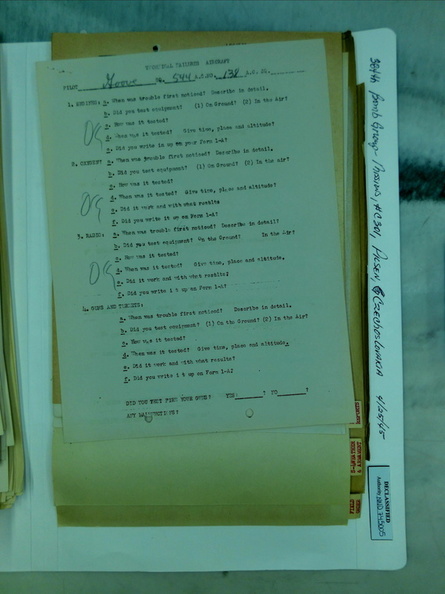 TECHNICAL FAILURES AIRCRAFT
PILOT Groove No. 544 138
1. a. When was trouble first noticed? Describe in detail.
b. Did you test equipment? (1) On Ground? (2) In the Air?
c. How was it tested?
d. When was it tested? Give time, place and altitude?
Did you write it up on your Form 1-A?
OG
2. a. When was trouble first noticed? Describe in detail.
b. Did you test equipment? (1) On Ground? (2) In the air?
c. How was it tested?
d. When was it tested? Give time, place and altitude?
e. Did it work and with what results
f. Did you write it up on Form 1-A?
3. RADIO: a. When was trouble first noticed? Describe in detail?
b. Did you test equipment? On the Ground? In the Air?
c. How was it tested?
d. When was it tested? Give time, place and altitude.
e. Did it work and with what results?
f. Did you write it up on Form 1-A?
4. GUNS AND TURRETS:
a. When was trouble first noticed? Describe in detail.
b. Did you test equipment? (1) On the Ground? (2) In the Air?
c. How was it tested?
d. When was it tested? Give time, place and altitude.
e. Did it work and with what results?
f. Did you write i t up on Form 1-A?
DID YOU TEST FIRE YOUR GUNS? YES ? NO ?
ANY MALFUNCTIONS?
384th Bomb Group - Mission #301, Pilsen, Czechoslovakia 4/25/45
DECLASSIFIED
Authority NND 745005